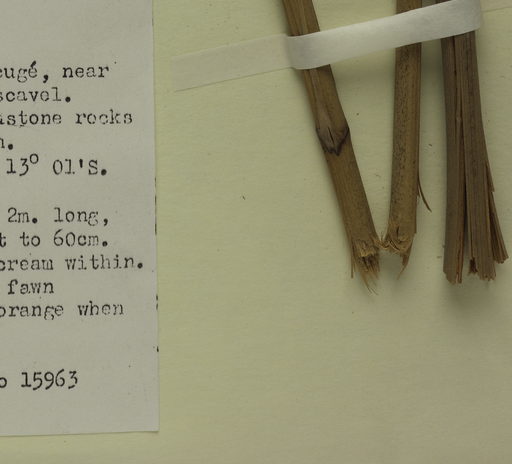 cugé, near
scavel.
stone rocks
13° 01'S.
2m. long,
t to 60cm.
cream within.
fawn
orange when
o 15963